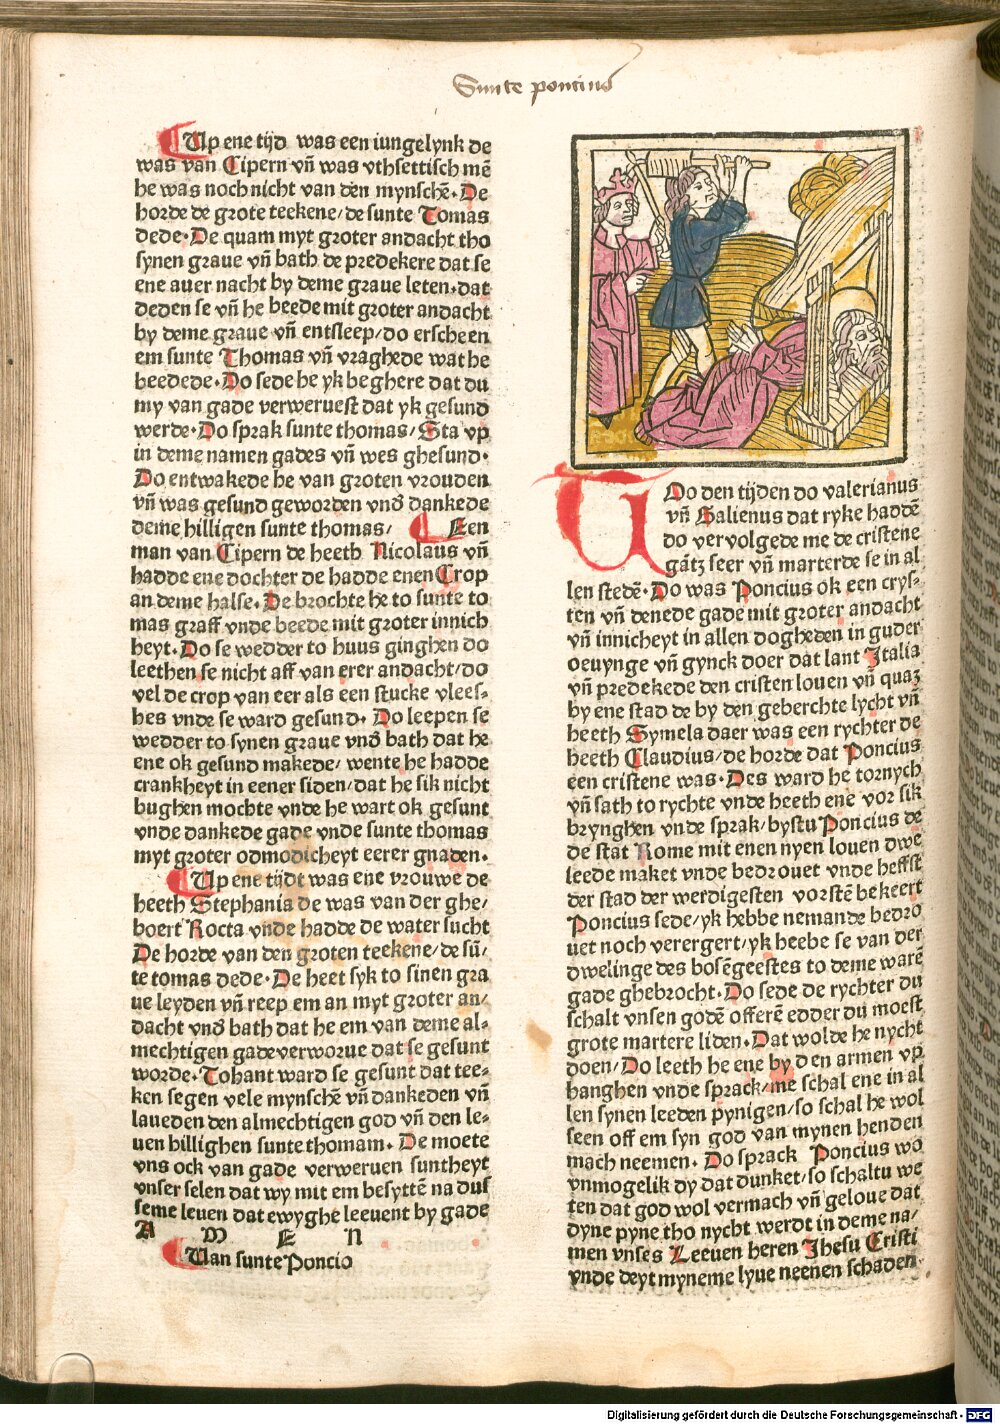 Sunte poncius
Up ene tijd was een iungelynk de
was van Cipern vn̄ was vthsettisch mē
he was noch nicht van den mynschē. De
horde de grote teekene/ de sunte Tomas
dede. De quam myt groter andacht tho
synen graue vn̄ bath de predekere dat se
ene auer nacht by deme graue leten. dat
deden se vn̄ he beede mit groter andacht
by deme graue vn̄ entsleep/ do erscheen
em sunte Thomas vn̄ vraghede wat he
beedede. Do sede he yk beghere dat du
my van gade verweruest dat yk gesund
werde. Do sprak sunte thomas/ Sta vp
in deme namen gades vn̄ wes ghesund.
Do entwakede he van groten vrouden
vn̄ was gesund geworden vnd dankede
deme hilligen sunte thomas/ Een
man van Cipern de heeth Nicolaus vn̄
hadde ene dochter de hadde enen Crop
an deme halse. De brochte he to sunte to
mas graff vnde beede mit groter innich
heyt. Do se wedder to huus ginghen do
leethen se nicht aff van erer andacht/ do
vel de crop van eer als een stucke vlees-
hes vnde se ward gesund. Do leepen se
wedder to synen graue vnd bath dat he
ene ok gesund makede/ wente he hadde
crankheyt in eener siden/ dat he sik nicht
bughen mochte vnde he wart ok gesunt
vnde dankede gade vnde sunte thomas
myt groter odmodicheyt eerer gnaden.
Up ene tijdt was ene vrouwe de
heeth Stephania de was van der ghe/
boert Rocta vnde hadde de water sucht
De horde van den groten teekene/ de sū/
te tomas dede. De heet syk to sinen gra
ue leyden vn̄ reep em an myt groter an/
dacht vnd bath dat he em van deme al-
mechtigen gade verworue dat se gesunt
worde. Tohant ward se gesunt dat tee-
ken segen vele mynschē vn̄ dankeden vn̄
laueden den almechtigen god vn̄ den le-
uen hillighen sunte thomam. De moete
vns ock van gade verweruen suntheyt
vnser selen dat wy mit em besyttē na dus
seme leuen dat ewyghe leeuent by gade
A M E N
Van sunte Poncio
UDo den tijden do valerianus
vn̄ Galienus dat ryke haddē
do vervolgede me de cristene
gātz seer vn̄ marterde se in al
len stedē. Do was Poncius ok een crys-
ten vn̄ denede gade mit groter andacht
vn̄ innicheyt in allen dogheden in guder
oeuynge vn̄ gynck doer dat lant Italia
vn̄ predekede den cristen louen vn̄ quaz
by ene stad de by den geberchte lycht vn̄
heeth Symela daer was een rychter de
heeth Claudius/ de horde dat Poncius
een cristene was. Des ward he tornych
vn̄ sath to rychte vnde heeth ene vor sik
brynghen vnde sprak/ bystu Poncius de
de stat Rome mit enen nyen louen dwe
leede maket vnde bedrouet vnde heffst
der stad der werdigesten vorstē bekeert
Poncius sede/ yk hebbe nemande bedro
uet noch verergert/ yk heebe se van der
dwelinge des bosēgeestes to deme ware
gade ghebrocht. Do sede de rychter du
schalt vnsen godē offerē edder du moest
grote martere liden. Dat wolde he nycht
doen/ Do leeth he ene by den armen vp
hanghen vnde sprack/ me schal ene in al
len synen leeden pynigen/ so schal he wol
seen off em syn god van mynen henden
mach neemen. Do sprack Poncius wo
vnmogelik dy dat dunket/ so schaltu we
ten dat god wol vermach vn̄ geloue dat
dyne pyne tho nycht werdt in deme na/
men vnses Leeuen heren Jhesu Cristi
vnde deyt myneme lyue neenen schaden
Digitalisierung gefördert durch die Deutsche Forschungsgemeinschaft - DFG